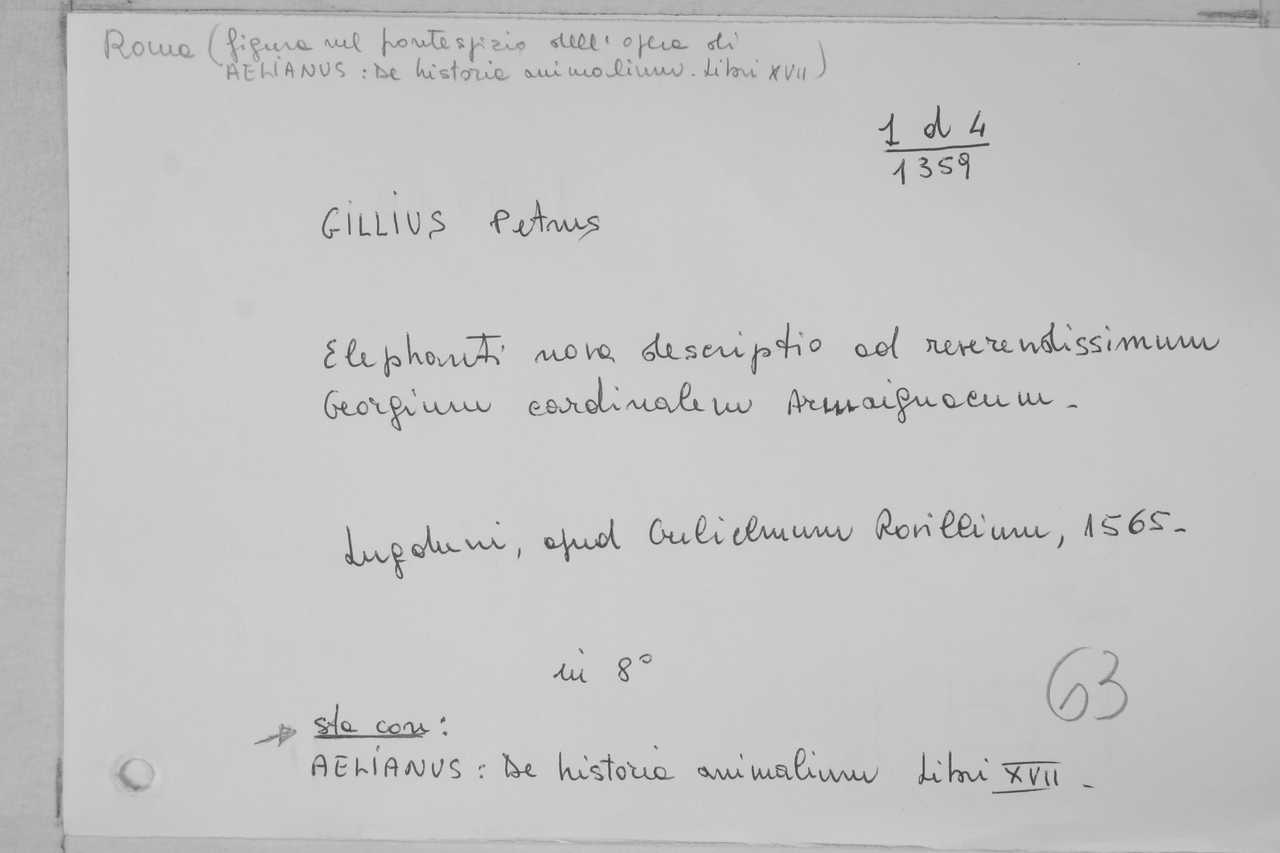 Roma (figura nel frontespizio dell'opera di
AELIANUS : De historia animalium. Libri XVII)
1 d 4
1359
GILLIUS Petrus
Elephanti nova descriptio ad reverendissimum
Georgium cardinalem Armaignacum -
Lugduni, apud Gulielmum Rovillium, 1565-
in 8°
63
sta con :
AELIANUS : De historia animalium Libri XVII -